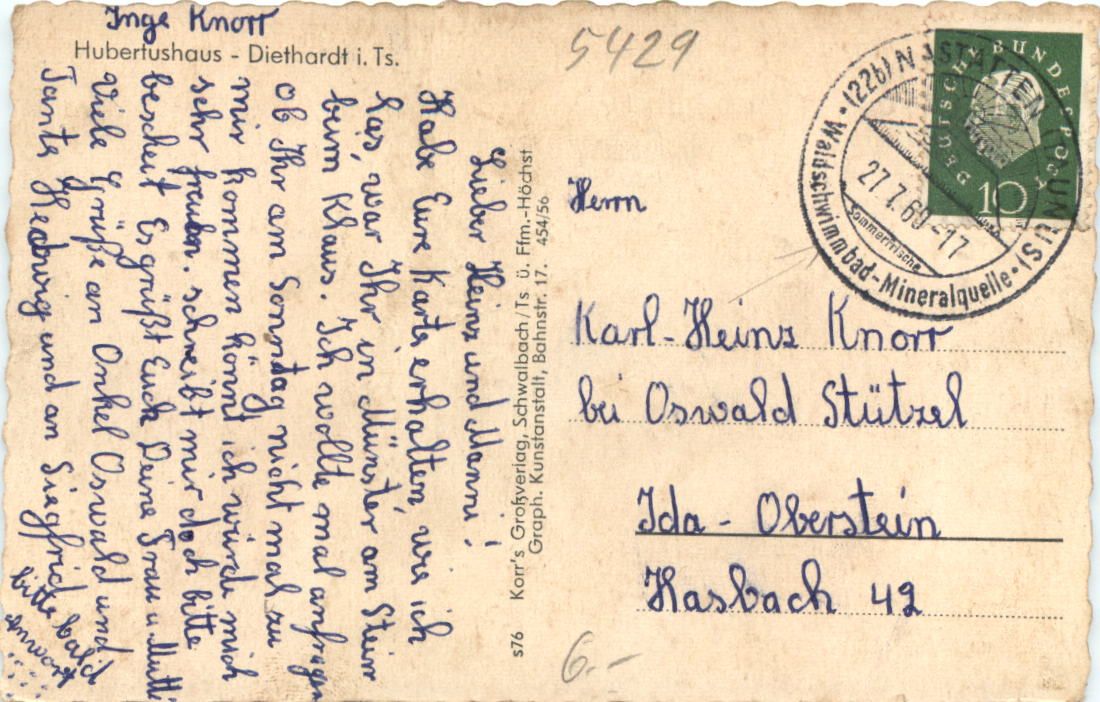 Inge Knorr
Hubertushaus - Diethardt i. Ts.
Lieber Heinz und Manni!
Habe Eure Karte erhalten, wie ich
las, war Ihr in Münster am Stein
beim Klaus. Ich wollte mal anfragen
ob Ihr am Sonntag nicht mal zu
mir kommen könnt ich würde mich
sehr freuen. schreibt mir doch bitte
bescheit Es grüßt Euch Deine Frau u. Mutti
Viele Grüße an Onkel Oswald und
Tante Hedwig und an Siegfried
bitte bald
anwort
s76 Korr's Großverlag, Schwalbach/Ts ü. Ffm.-Höchst
Graph. Kunstanstalt, Bahnstr. 17. 454/56
5429
(22b) NASTÄTTEN (TAUNUS)
Waldschwimmbad-Mineralquelle
27.7.60-17
Sommerfrische
DEUTSCHE BUNDESPOST
10
Herrn
Karl-Heinz Knorr
bei Oswald Stützel
Ida-Oberstein
Hasbach 42
6.-